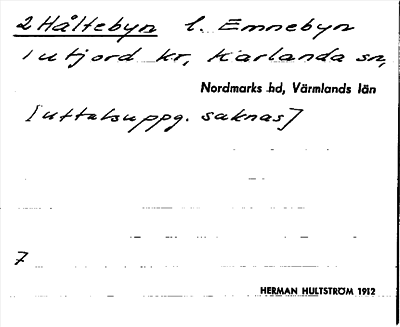 2 Håltebyn l. Emnebyn
1 utjord kr, Karlanda sn,
Nordmarks hd, Värmlands län
[uttalsuppg. saknas]
7
HERMAN HULTSTRÖM 1912